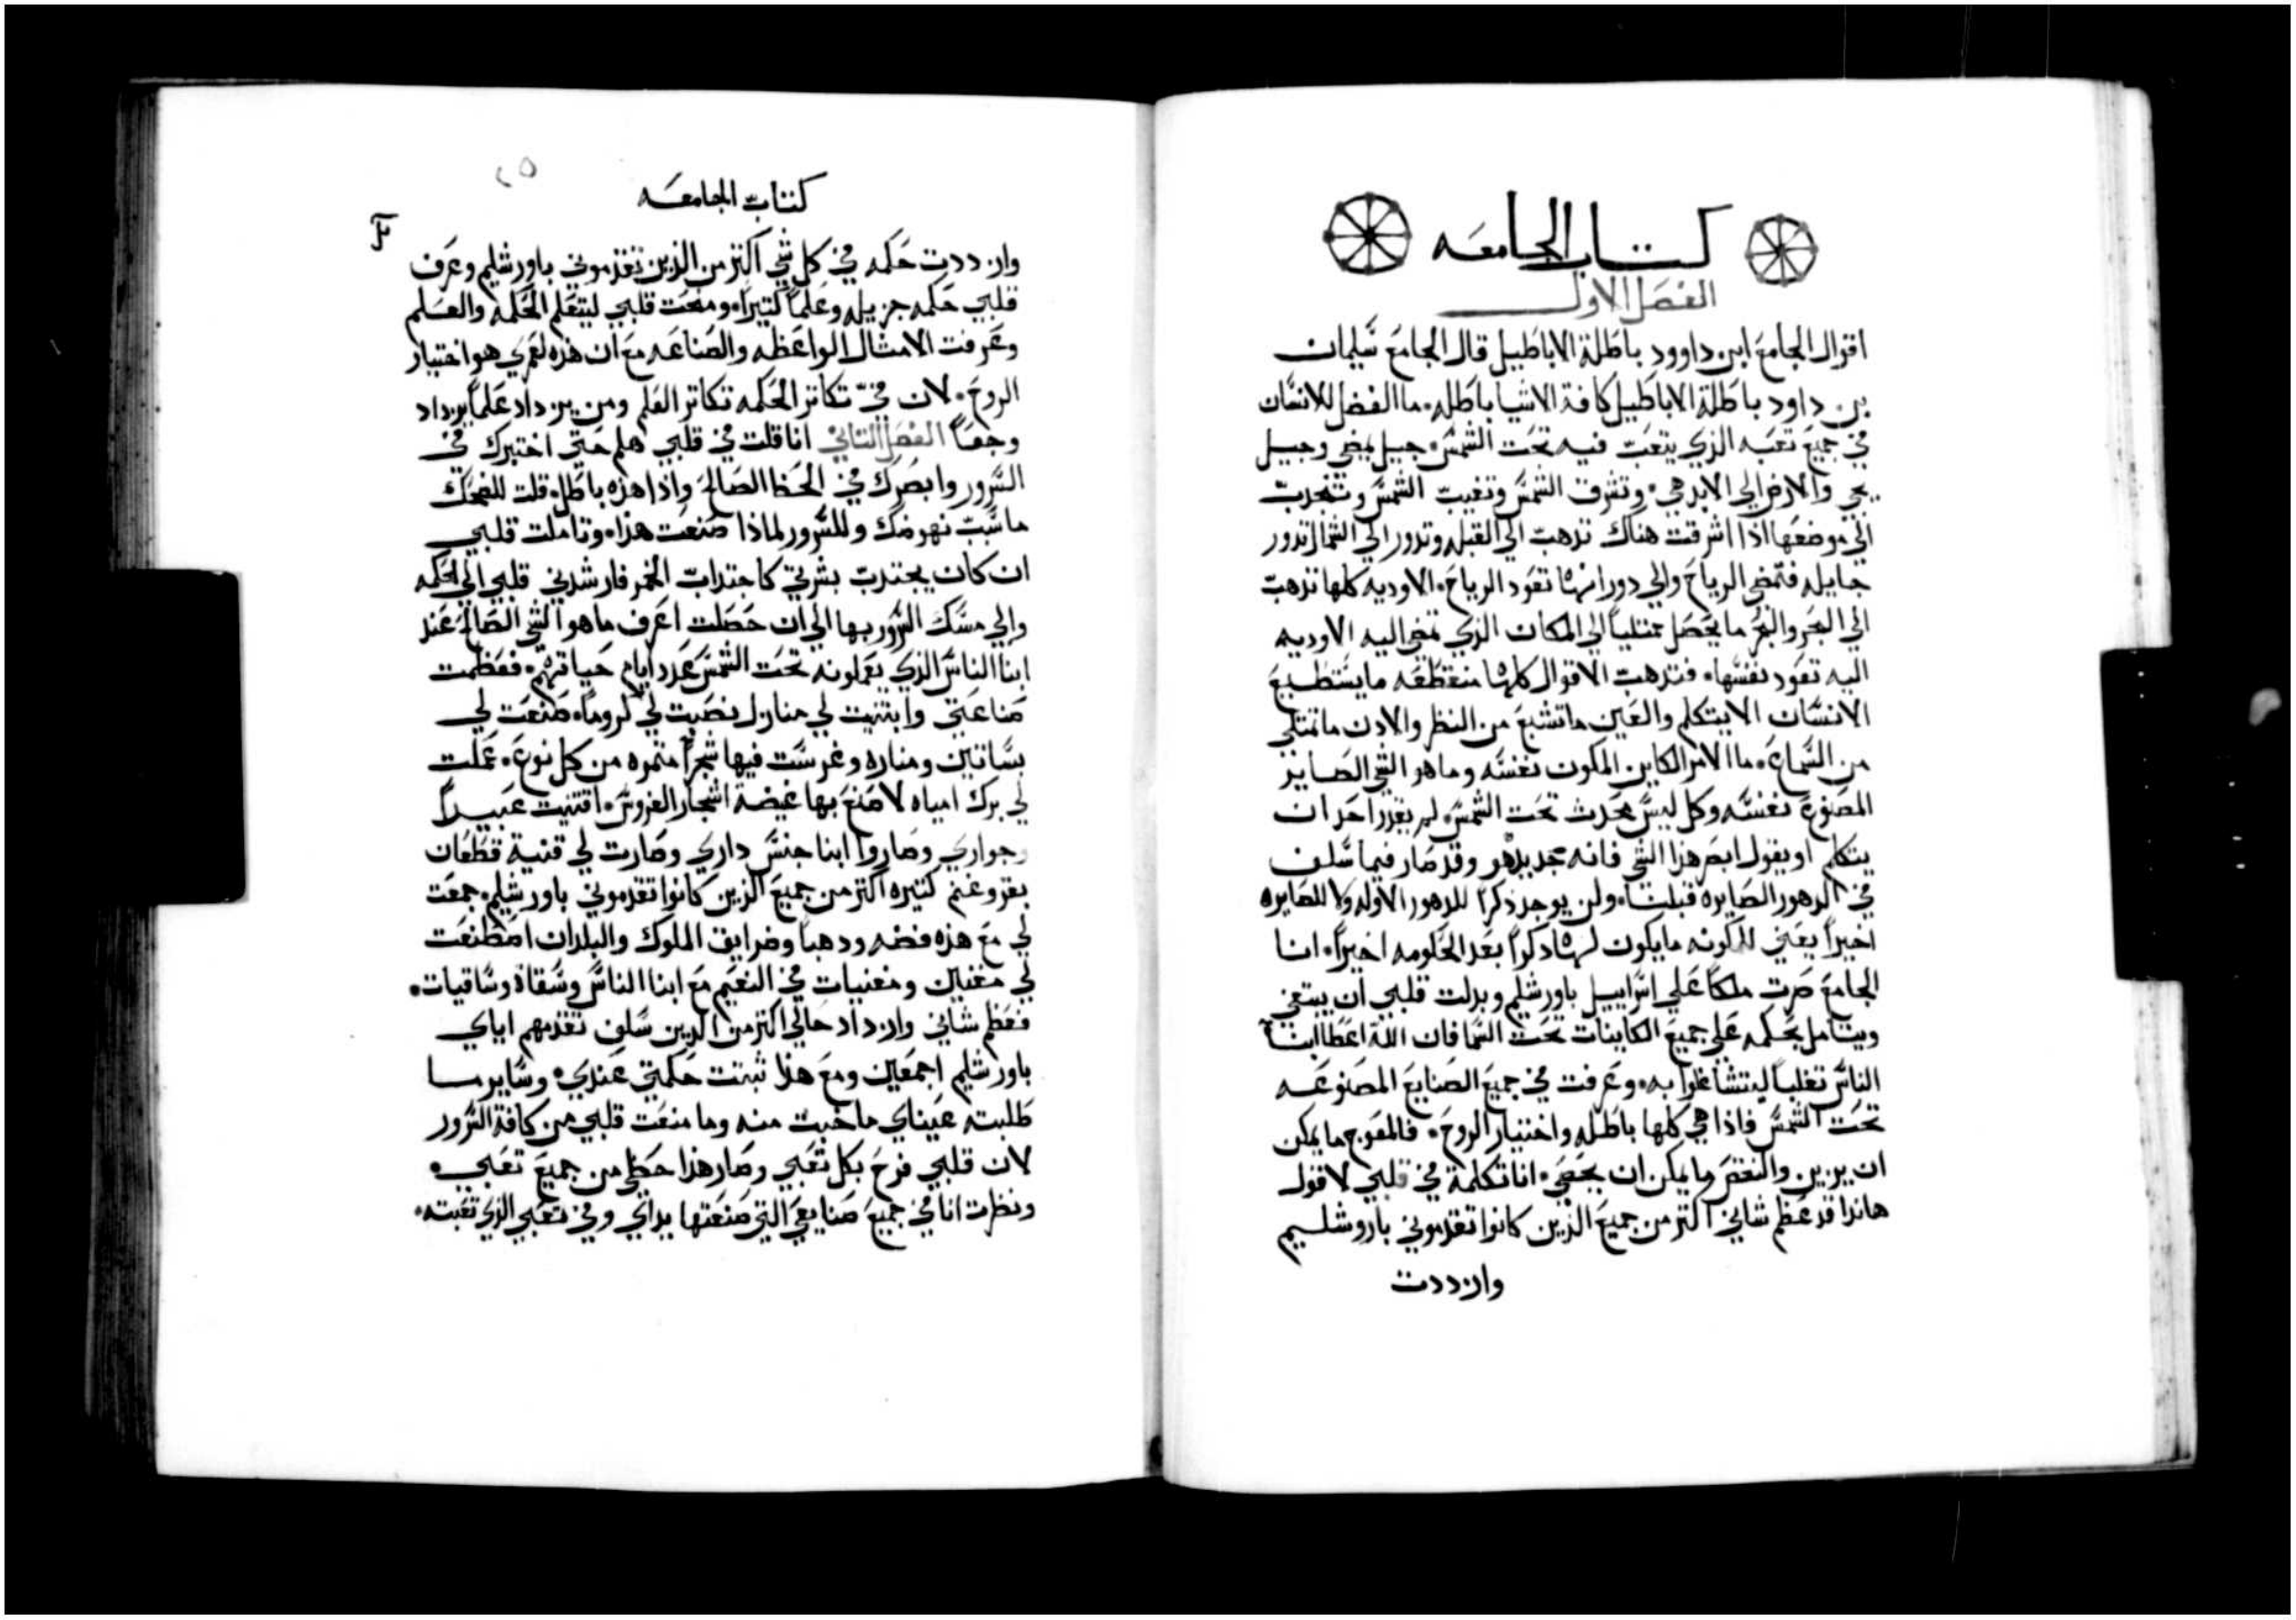 كتاب الجامعه
الفصل الاول
اقوال الجامع ابن داوود باطلة الاباطيل قال الجامع سليمان
بن داود باطلة الاباطيل كافة الاشيا باطله. ما الفضل للانسان
في جميع تعبه الذي يتعب فيه تحت الشمس. جيل يمضي وجيل
يجي والارض الي الابد هي. وتشرق الشمس وتغيب الشمس وتنجدب
الي موضعها اذا اشرقت هناك تدهب الي القبله وتدور الي الشمال تدور
جايله فتمضي الرياح والي دورانها تعود الرياح. الاوديه كلها تذهب
الي البحر والبحر ما يحصل ممتلياً الي المكان الذي تمضي اليه الاوديه
اليه تعود نفسها. فتدهب الاقوال كلها منقطعه ما يستطيع
الانسان الايتكلم والعين ما تشبع من النظر والادن ما تمتلي
من السماع. ما الامر الكاين المكون نفسه وما هو الشي الصاير
المصنوع نفسه وكل ليس محدث تحت الشمس. لم يقدر احد ان
يتكلم او يقول ابصر هذا الشي فانه جديد هو وقد صار فيما سلف
في الدهور الصايره قبلنا. ولن يوجد ذكراً للدهور الاوله ولا للصايره
اخيراً يعني للكونه ما يكون لها دكراً بعد الحلومه اخيراً. انا
الجامع صرت ملكاً علي اسراييل باورشليم وبدلت قلبي ان يبتغي
ويتامل بحكمه علي جميع الكاينات تحت السما فان الله اعطا ابنا
الناس تغلباً ليتشاغلوا به. وعرفت في جميع الصنايع المصنوعه
تحت الشمس فاذا هي كلها باطله واختيار الروح. فالمعوج ما يمكن
ان يزين والنقص ما يمكن ان يحصي. انا تكلمة في قلبي لاقول
هاندا قد عظم شاني اكتر من جميع الذين كانوا تقدموني باروشليم
وازددت
٢٥
كتاب الجامعه
وازددت حكمه في كل شي اكتر من الذين تقدموني باورشليم وعرف
قلبي حكمه جزيله وعلماً كتيراً. ومنحت قلبي ليتعلم الحكمه والعلم
وعرفت الامثال الواعظه والصناعه مع ان هذه لعمري هو اختيار
الروح. لان في تكاتر الحكمه تكاتر الفلم ومن يزداد علماً يزداد
وجعاً الفصل التاني انا قلت في قلبي هلم حتي اختبرك في
السرور وابصرك في الحظ الصالح واذا هذه باطله قلت للضحك
ما سبب نهوضك وللسرور لماذا صنعت هذا. وتاملت قلبي
ان كان يجتدب بشرتي كاجتداب الخمر فارشدني قلبي الي الحكمه
والي مسك السرور بها الي ان حصلت اعرف ما هو الشي الصالح عند
ابنا الناس الذي يعملونه تحت الشمس عدد ايام حياتهم. فعظمت
صناعتي وابتنيت لي منازل نصبت لي كروماً. صنعت لي
بساتين ومناره وغرست فيها شجراً متمره من كل نوع. عملت
لي برك امياه لاصنع بها غيضة اشجار الغروس. اقتنيت عبيداً
وجواري وصاروا ابنا جنس داري وصارت لي قنية قطعان
بقر وغنم كتيره اكتر من جميع الذين كانوا تقدموني باورشليم. جمعت
لي مع هذه فضه ودهباً وضرايق الملوك والبلدان اصطنعت
لي مغنيين ومغنيات في النعيم مع ابنا الناس وسقاة وساقيات.
فعظم شاني وازداد حالي اكتر من الذين سلف تقدمهم اياي
باورشليم اجمعين ومع هذا تبتت حكمتي عندي. وساير ما
طلبته عيناي ما خبت منه وما منعت قلبي من كافة السرور
لان قلبي فرح بكل تعبي وصار هذا حظي من جميع تعبي.
ونظرت انا في جميع صنايعي التي صنعتها يداي وفي تعبي الذي تعبته.